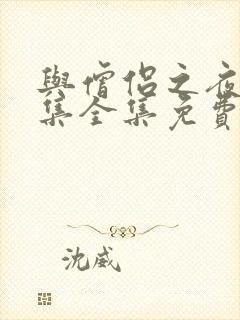 與僧侶之夜
集全集免費
沈威